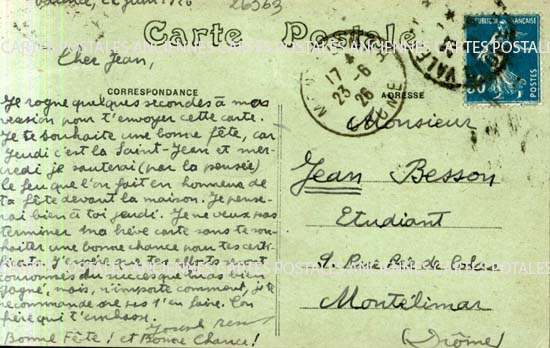 Valence, 22 Juin 1926
26363
Carte Postale
Cher Jean,
CORRESPONDANCE
ADRESSE
Je rogne quelques secondes à ma
session pour t'envoyer cette carte.
Je te souhaite une bonne fête, car
Jeudi c'est la Saint-Jean et mer-
credi je sauterai (par la pensée)
le feu que l'on fait en honneur de
ta fête devant la maison. Je pense-
rai bien à toi jeudi. Je ne veux pas
terminer ma brève carte sans te sou-
haiter une bonne chance pour tes certi-
ficats. J'espère que tes efforts seront
couronnés du succès que tu as bien
gagné, mais, n'importe comment, je te
recommande de ne pas t'en faire. Ton
frère qui t'embrasse.
Joseph
Bonne Fête! et Bonne Chance!
Monsieur
Jean Besson
Etudiant
Rue
Montélimar
(Drôme)
17
23-6
26
REPUBLIQUE FRANÇAISE
POSTES
CARTES POSTALES ANCIENNES CARTES POSTALES
CARTES POSTALES ANCIENNES CARTES POSTALES